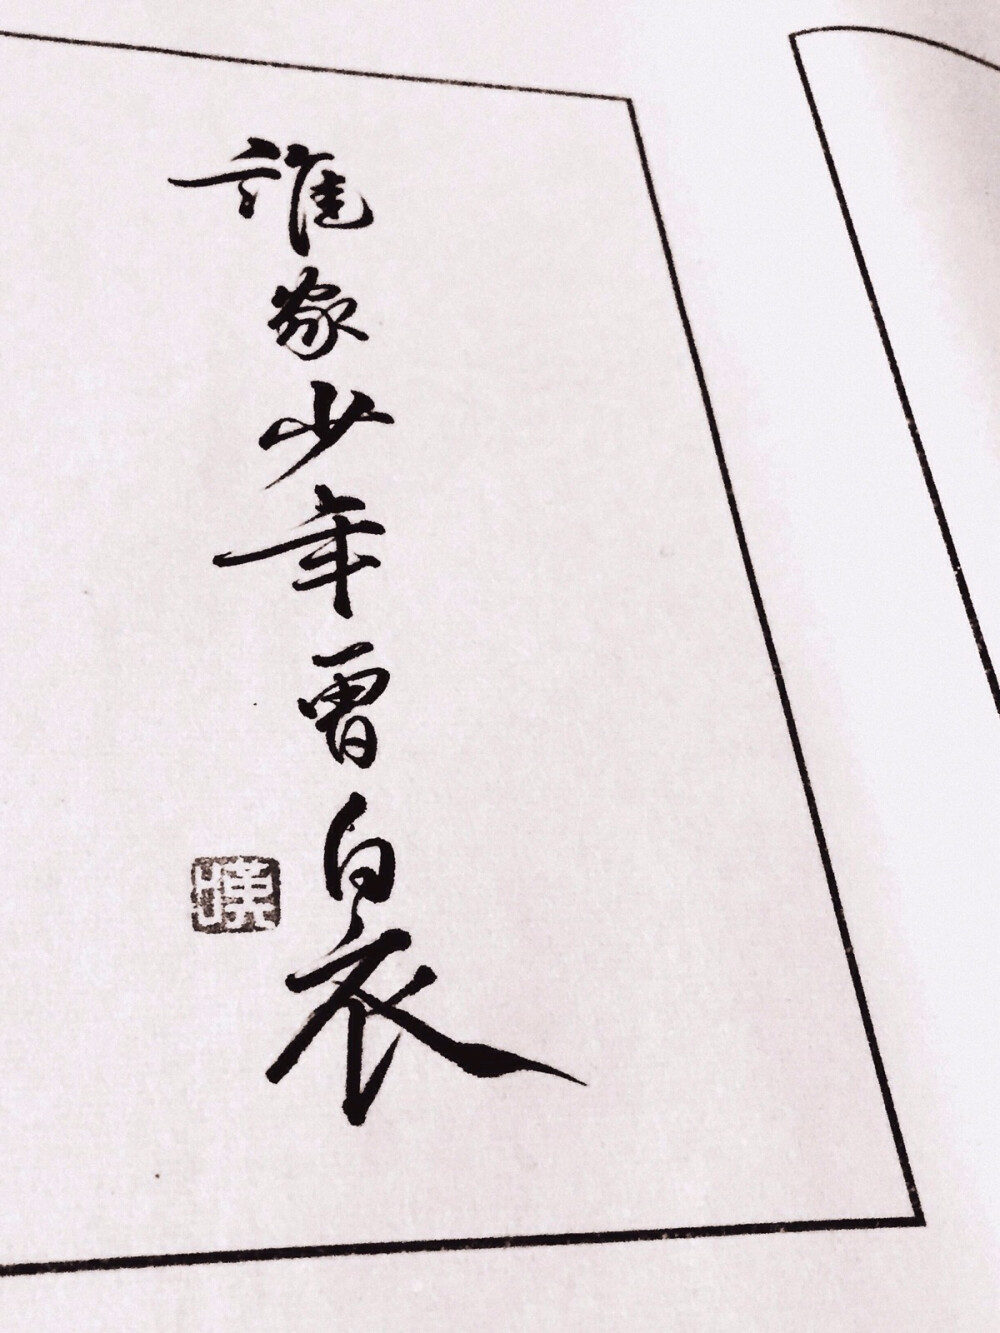 誰家少年曾白衣